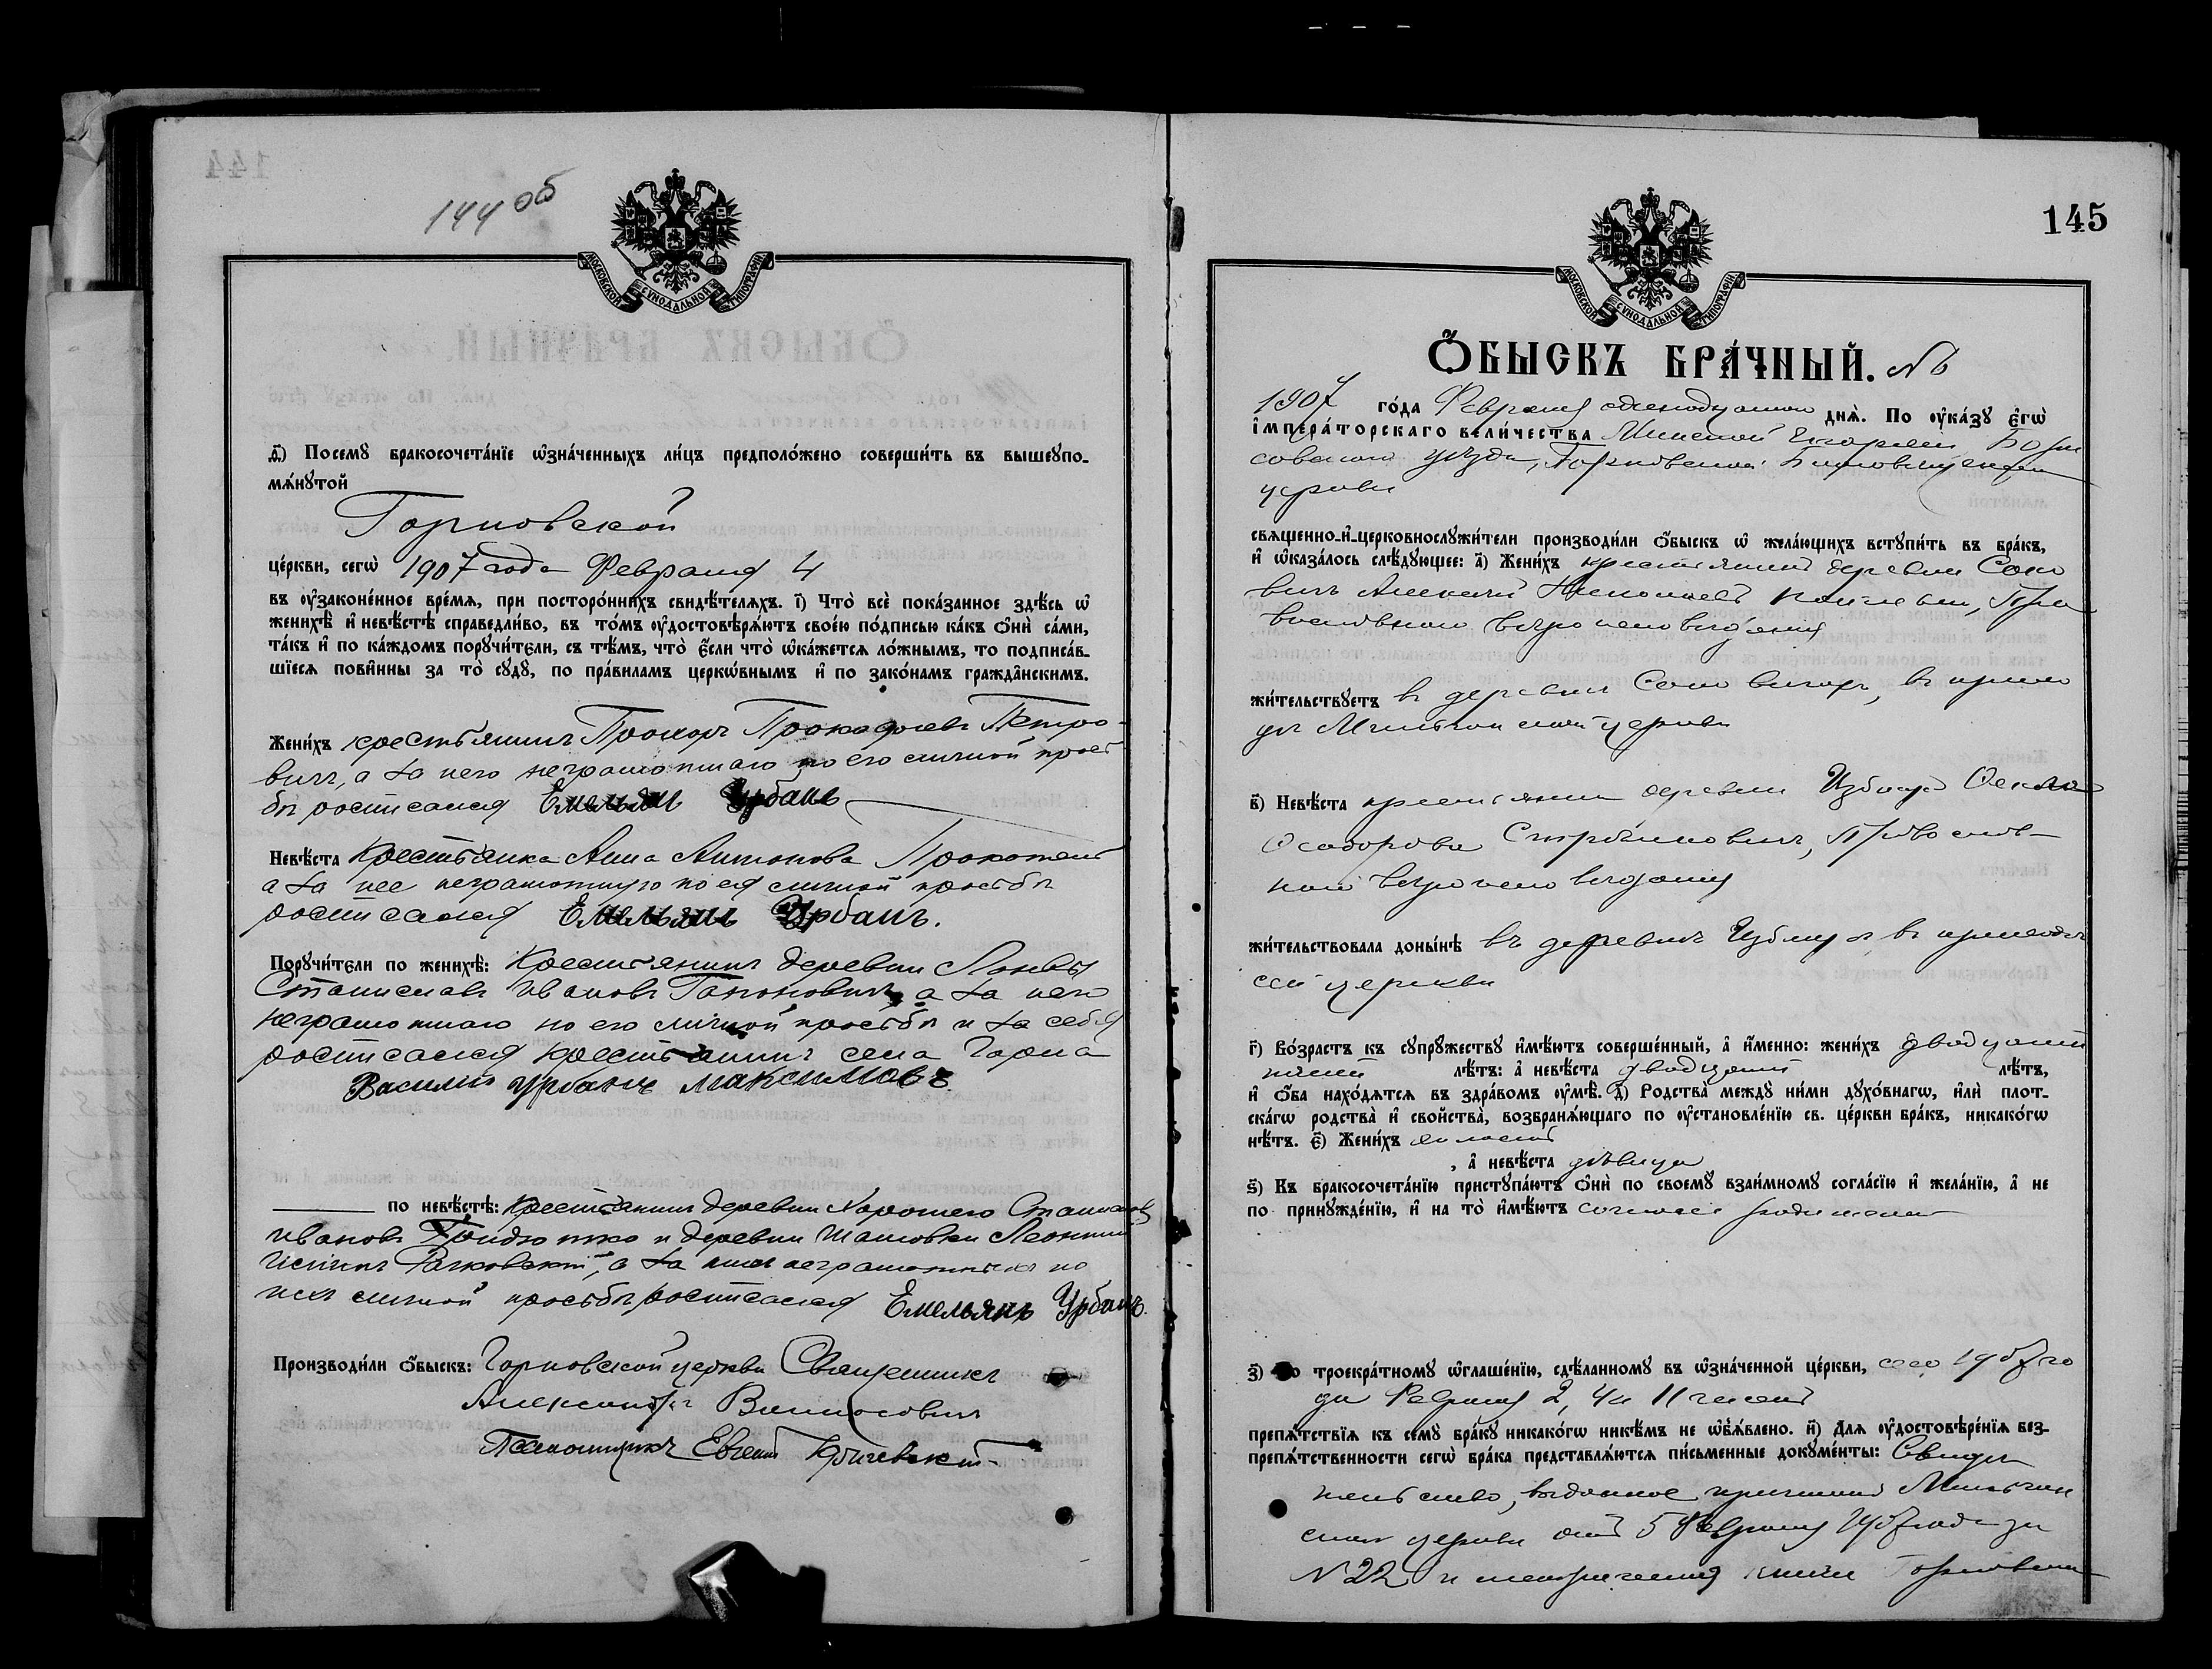 144 об
МОСКОВСКОЙ СѴНОДАЛЬНОЙ ТИПОГРАФІИ
Посемꙋ бракосочета́нїе ѡ҆зна́ченныхъ ли́цъ предположено соверши́ть въ вышеꙋпо-
мѧ́нꙋтой
Горновской
це́ркви, сегѡ̀ 1907 года Февраля 4
въ ᲂу҆законе́нное вре́мѧ, при посторо́ннихъ свидѣ́телѧхъ. і҃) Что̀ всѐ пока́занное здѣ́сь ѡ҆
женихѣ̀ и҆ невѣ́стѣ справедли́во, въ то́мъ ᲂу҆достовѣрѧ́ютъ свое́ю по́дписью ка́къ ѻ҆нѝ са́ми,
та́къ и҆ по ка́ждомъ порꙋчи́тели, съ тѣ́мъ, что̀ є҆́сли что̀ ѡ҆ка́жетсѧ ло́жнымъ, то подписа́в-
шїесѧ пови́нны за то̀ сꙋдꙋ̀, по пра́виламъ церко́внымъ и҆ по зако́намъ гражда́нскимъ.
Жени́хъ крестьянинъ Прохоръ Прокофіевъ Петро-
вичъ, а за него неграмотнаго по его личной прось-
бѣ росписался Емельянъ Урбанъ
Невѣ́ста Крестьянка Анна Антонова
а за нее неграмотную по ея личной просьбѣ
росписался Емельянъ Урбанъ.
Порꙋчи́тели по женихѣ̀: Крестьянинъ деревни
Станиславъ Ивановъ Гапоновичъ, а за него
неграмотнаго по его личной просьбѣ и за себя
росписался крестьянинъ села Горна
Василій Урбанъ Максимовъ
по невѣ́стѣ: Крестьянинъ деревни Хорошего Станиславъ
Ивановъ и деревни Леонтій
Рачковскій, а за нихъ неграмотныхъ по
ихъ личной просьбѣ росписался Емельянъ Урбанъ.
Производи́ли ѻ҆́быскъ: Горновской церкви Священникъ
Александръ
Псаломщикъ Евгеній
145
МОСКОВСКОЙ СѴНОДАЛЬНОЙ ТИПОГРАФІИ
Ѻ҆́БЫСКЪ БРА́ЧНЫЙ. № 6
1907 го́да Февраля одиннадцатаго днѧ̀. По ᲂу҆ка́зꙋ є҆гѡ̀
і҆мпера́торскагѡ вели́чества Минской Епархіи Бори
совскаго уѣзда, Горновской церкви
церкви
свѧщенно-и҆-церковнослꙋжи́тели производи́ли ѻ҆́быскъ ѡ҆ жела́ющихъ встꙋпи́ть въ бра́къ,
и҆ ѡ҆каза́лось слѣ́дꙋющее: а҃) Жени́хъ крестьянинъ деревни
Алексѣй Николаевъ Пра
вославнаго вѣроисповѣданія
жи́тельствꙋетъ въ деревни въ прихо
дѣ церкви
в҃) Невѣ́ста крестьянка деревни Избища
Ѳеодорова Православ-
наго вѣроисповѣданія
жи́тельствовала доны́нѣ въ деревнѣ Избища въ приходѣ
сей церкви
г҃) Во́зрастъ къ сꙋпрꙋ́жествꙋ и҆мѣ́ютъ соверше́нный, а҆ и҆́менно: жени́хъ двадцати
пяти лѣ́тъ: а҆ невѣ́ста двадцати лѣ́тъ,
и҆ ѻ҆́ба нахо́дѧтсѧ въ здра́вомъ ᲂу҆мѣ̀. д҃) Родства̀ междꙋ̀ ни́ми дꙋхо́внагѡ, и҆лѝ плот-
ска́гѡ родства̀ и҆ свойства̀, возбранѧ́ющаго по ᲂу҆становле́нїю св. це́ркви бра́къ, никако́гѡ
нѣ́тъ. є҃) Жени́хъ холостъ
, а҆ невѣ́ста дѣвица
ѕ҃) Къ бракосочета́нїю пристꙋпа́ютъ ѻ҆нѝ по своемꙋ̀ взаи́мномꙋ согла́сїю и҆ жела́нїю, а҆ не
по принꙋжде́нїю, и҆ на то̀ и҆мѣ́ютъ согласіе родителей
з҃) по троекра́тномꙋ ѡ҆глаше́нїю, сдѣ́ланномꙋ въ ѡ҆зна́ченной це́ркви, сего 1907 го
да Февраля 2, 4 и 11 чиселъ
препѧ́тствїѧ къ семꙋ̀ бра́кꙋ никако́гѡ никѣ́мъ не ѡ҆б̾ѧ́влено. и҃) Длѧ ᲂу҆достовѣре́нїѧ без-
препѧ́тственности сегѡ̀ бра́ка представлѧ́ютсѧ пи́сьменные докꙋме́нты: Свидѣ
тельство, выданное причтомъ
ской церкви отъ 5 Февраля 1907 года за
№ 22 и метрическія книги Горновской